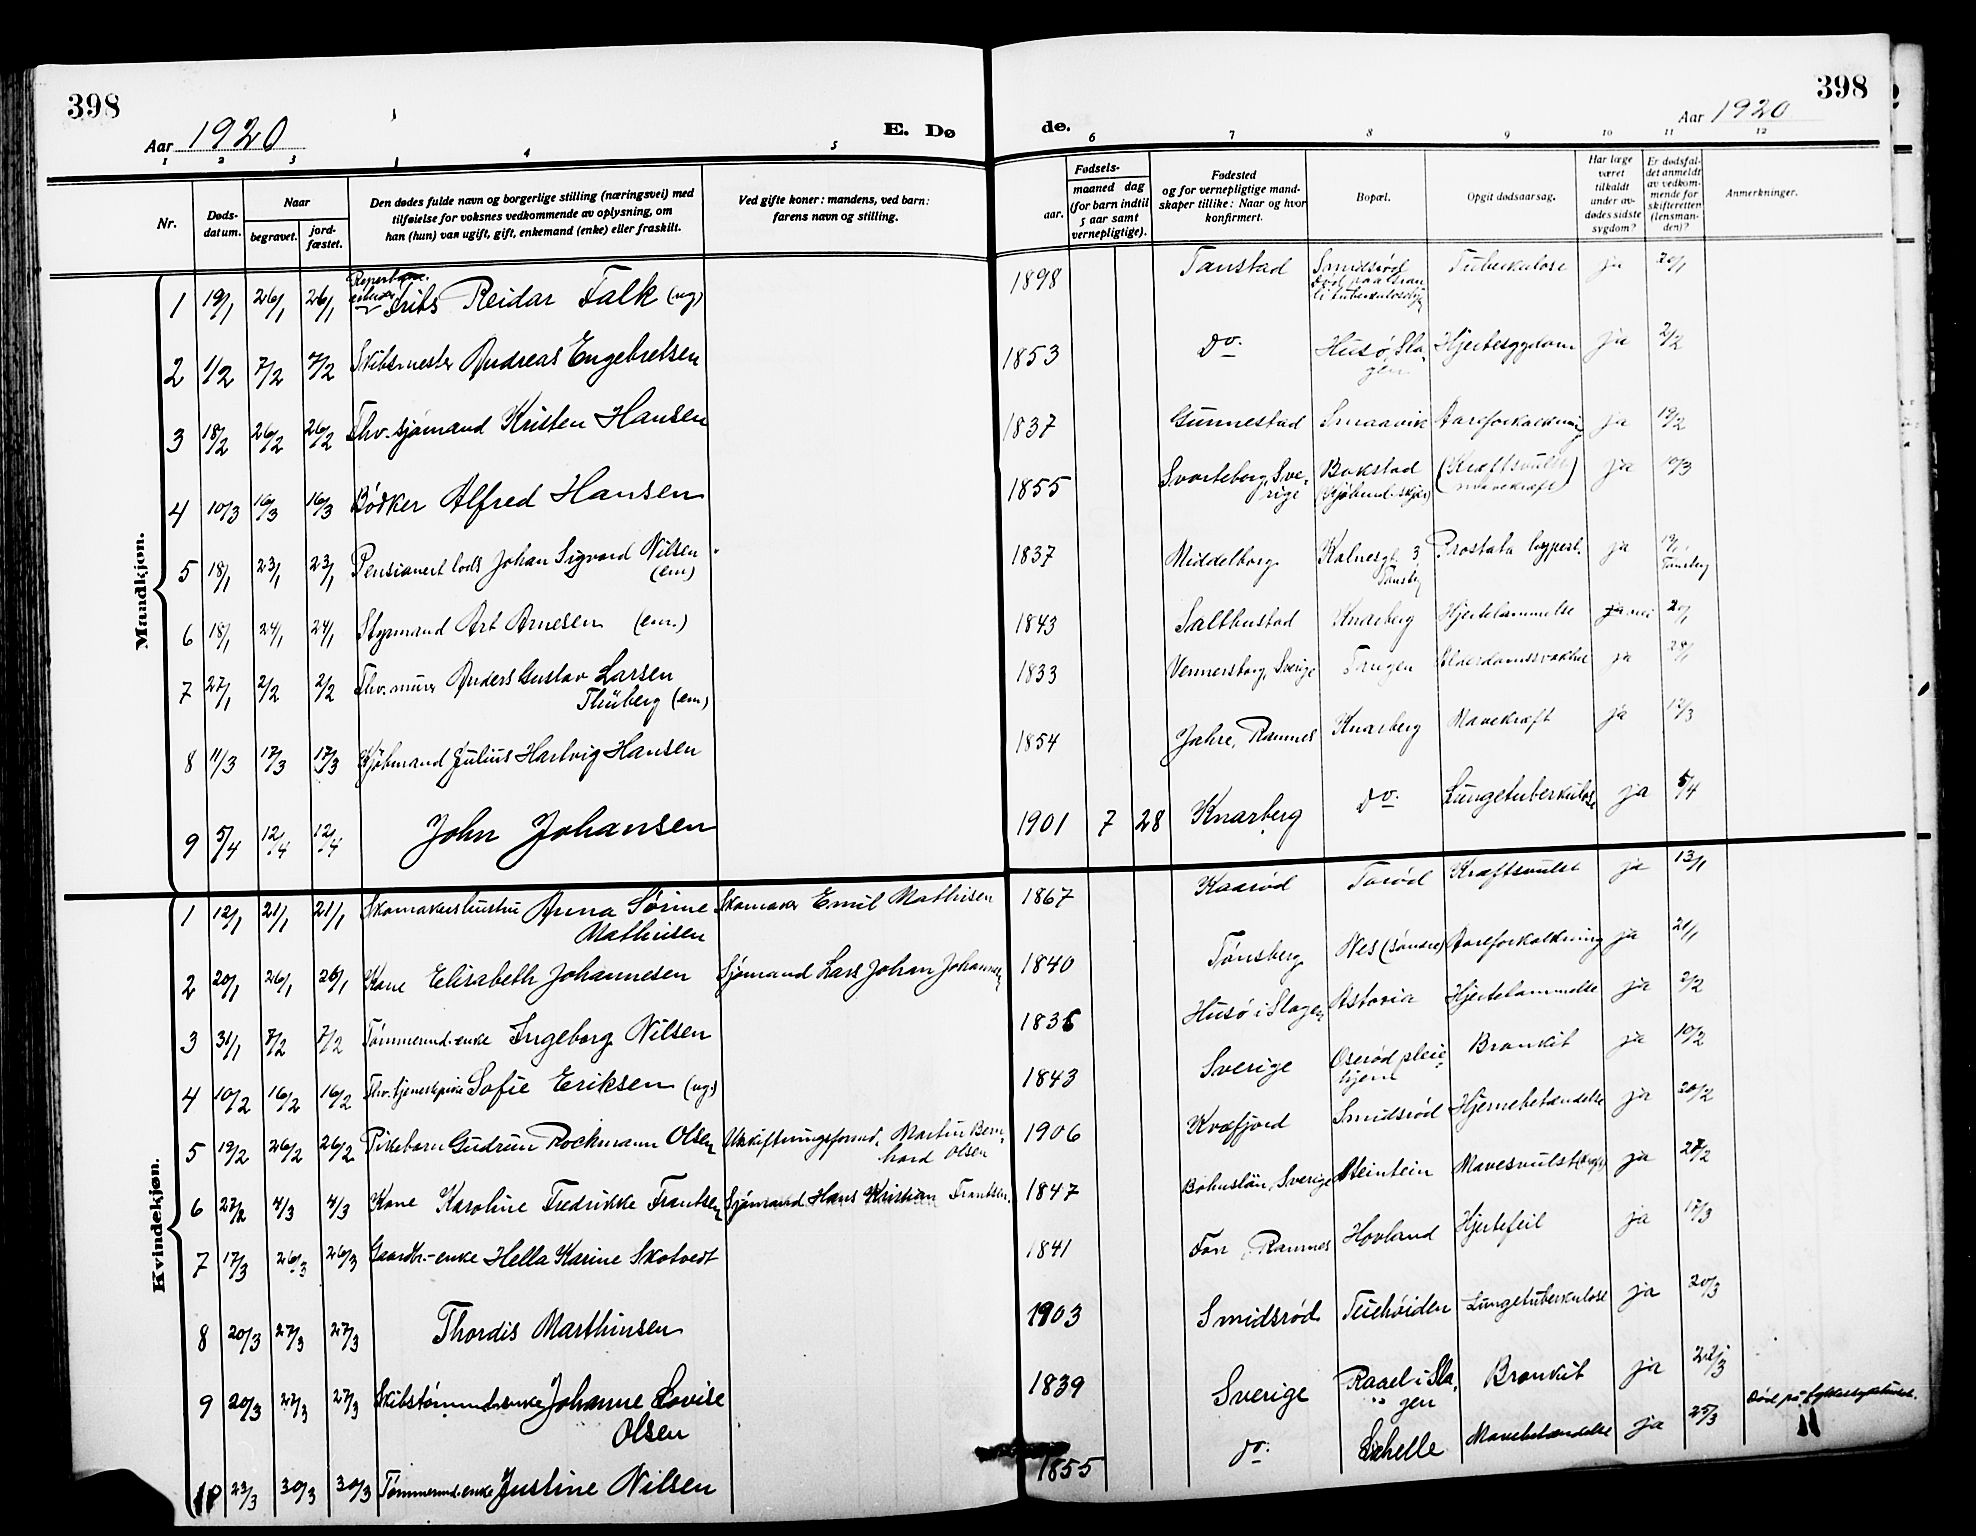 398
398
Aar 1920
E. Dø
de.
Aar 1920
1 2 3 4 5 6 7 8 9 10 11 12
Nr.
Døds-
datum.
Naar
begravet.
jord-
fæstet.
Den dødes fulde navn og borgerlige stilling (næringsvei) med
tilføielse for voksnes vedkommende av oplysning, om
han (hun) var ugift, gift, enkemand (enke) eller fraskilt.
Ved gifte koner: mandens, ved barn:
farens navn og stilling.
Fødsels-
aar.
maaned dag
(for barn indtil
5 aar samt
vernepligtige).
Fødested
og for vernepligtige mand-
skaper tillike: Naar og hvor
konfirmert.
Bopæl.
Opgit dødsaarsag.
Har læge
været
tilkaldt
under av-
dødes sidste
sygdom?
Er dødsfal-
det anmeldt
av vedkom-
mende for
skifteretten
(lensman-
den)?
Anmerkninger.
Mandkjøn.
1 19/1 26/1 26/1 Reidar Falk (ug) 1898 Tanstad Smidsrød Tuberkulose ja 20/1
2 1/2 7/2 7/2 Skibsmester Andreas Engebretsen 1853 Do. Husø, Sla- Hjertesygdom ja 2/2
gen
3 18/2 26/2 26/2 Fhv. sjømand Kristen Hansen 1837 Gunnestad Smaavik Aareforkalkning ja 19/2
4 10/3 16/3 16/3 Bødker Alfred Hansen 1855 Svarteborg, Sve- Bakstad (Kræftsvulst) ja 10/3
rige mavekræft
5 18/1 23/1 23/1 Pensionert lods Johan Sigvard Nilsen 1837 Middelborg Kalnesgt. 3 Prostata hypert. ja 19/1
(em) Tønsberg Tønsberg
6 18/1 24/1 24/1 Styrmand Art Arnesen (em.) 1843 Salthustad Knarberg Hjertelammelse nei 20/1
7 27/1 2/2 2/2 Fhv. murer Anders Gustav Larsen 1833 Vennersborg, Sverige Tangen Alderdomssvakhet ja 28/1
Thüberg (em)
8 11/3 17/3 17/3 Kjøbmand Julius Hartvig Hansen 1854 Jahre, Ramnes Knarberg Mavekræft ja 12/3
9 5/4 12/4 12/4 John Johansen 1901 7 28 Knarberg Do. Lungetuberkulose ja 5/4
Kvindekjøn.
1 12/1 21/1 21/1 Skomakerhustru Anna Sørine Skomaker Emil Mathisen 1867 Kaarød Torød Kræftsvulst ja 13/1
Mathisen
2 20/1 26/1 26/1 Kone Elisabeth Johannesen Sjømand Lars Johan Johannesen 1840 Tønsberg Nes (søndre) Aareforkalkning ja 21/1
3 31/1 8/2 8/2 Tømmermd.enke Ingeborg Nilsen 1835 Husø i Slagen Astoria Hjertelammelse ja 2/2
4 10/2 16/2 16/2 Fhv. tjenestepike Sofie Eriksen (ug.) 1843 Sverige Oserød pleie- Bronkit ja 10/2
hjem
5 19/2 26/2 26/2 Pikebarn Gudrun Rockmann Olsen Utskiftningsformd. Martin Bern- 1906 Kvæfjord Smidsrød Hjernebetændelse ja 20/2
hard Olsen
6 27/2 4/3 4/3 Kone Karoline Fredrikke Frantsen Sjømand Hans Kristian Frantsen 1847 Bohuslän, Sverige Steintein Mavesvulst ja 28/2
7 17/3 26/3 26/3 Gaardbr.-enke Hella Karine Skotvedt 1841 Fon, Ramnes Hovland Hjertefeil ja 17/3
8 20/3 27/3 27/3 Thordis Marthinsen 1903 Smidsrød Teiehøiden Lungetuberkulose ja 20/3
9 20/3 27/3 27/3 Skibstømmermd.enke Johanne Lovise 1839 Sverige Raael i Sla- Bronkit ja 22/3
Olsen gen
10 23/3 30/3 30/3 Tømmermd.enke Justine Nilsen 1855 Do. Mavebetændelse ja 25/3 Død på fylkessykehuset.